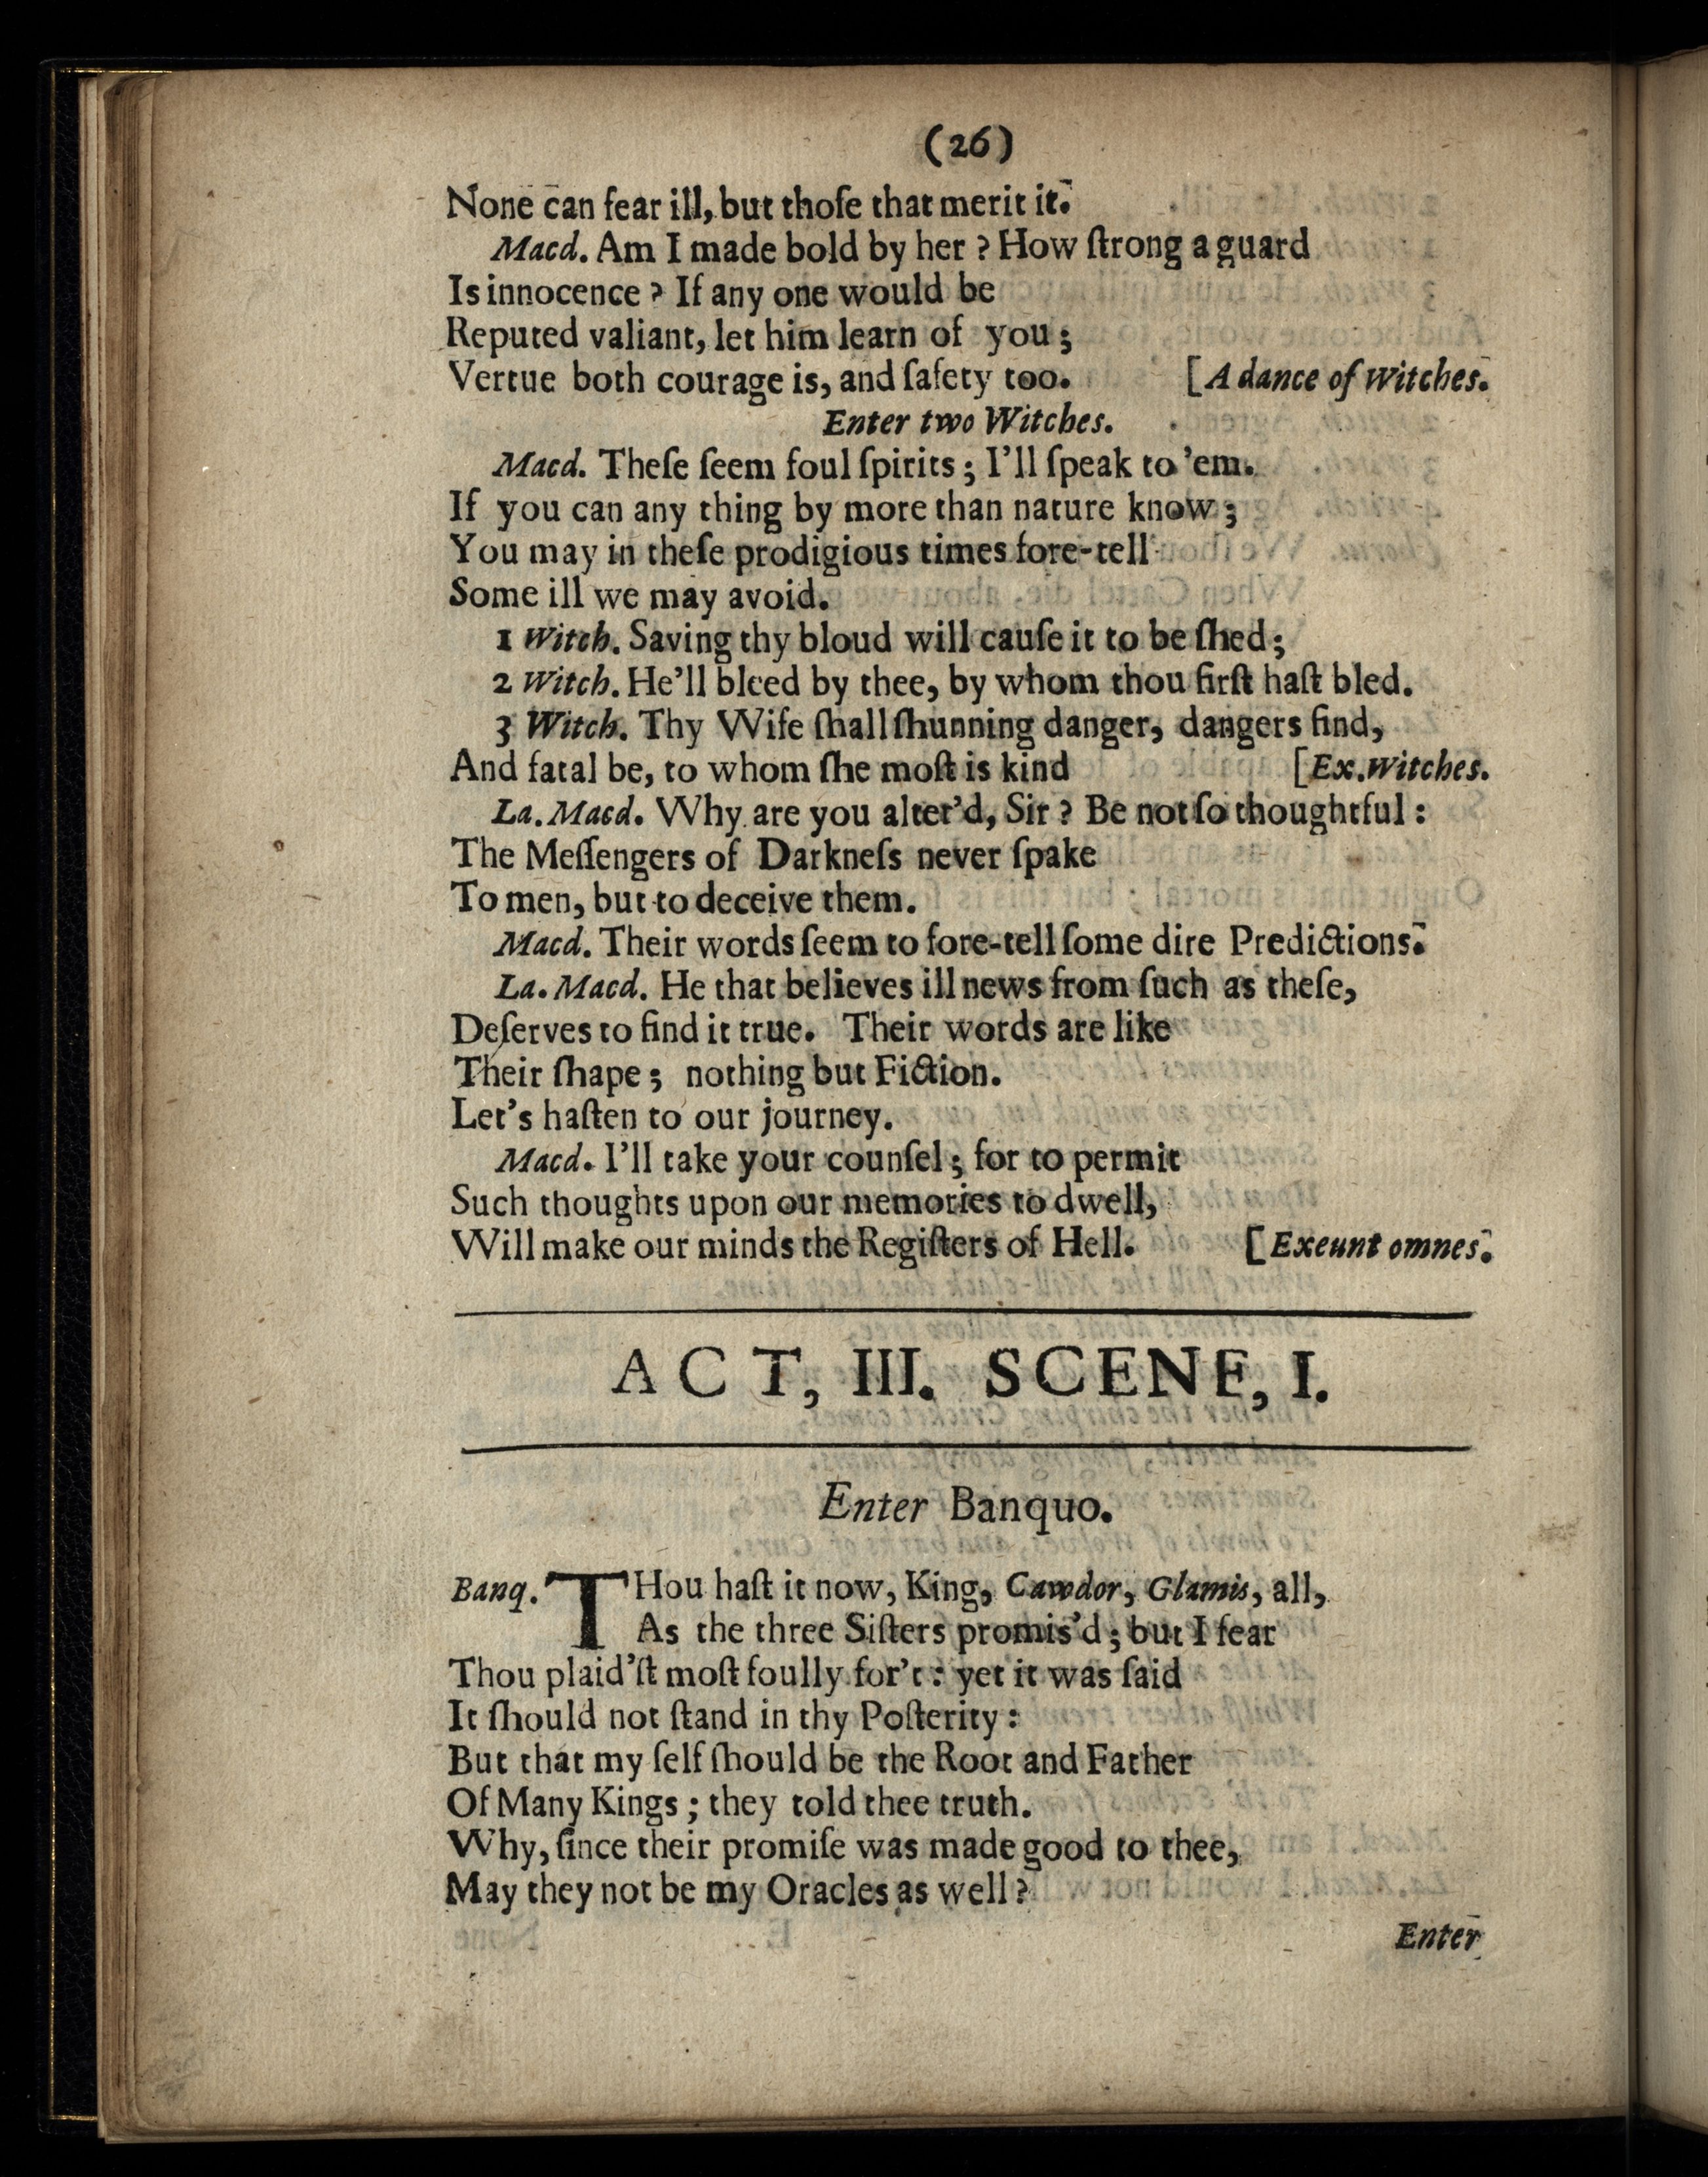 (26)
None can fear ill, but thoſe that merit it.
Macd. Am I made bold by her ? How ſtrong a guard
Is innocence ? If any one would be
Reputed valiant, let him learn of you ;
Vertue both courage is, and ſafety too. [A dance of Witches.
Enter two Witches.
Macd. Theſe ſeem foul ſpirits ; I'll ſpeak to 'em.
If you can any thing by more than nature know ;
You may in theſe prodigious times fore-tell
Some ill we may avoid.
1 Witch. Saving thy bloud will cauſe it to be ſhed ;
2 Witch. He'll bleed by thee, by whom thou firſt haſt bled.
3 Witch. Thy Wife ſhall ſhunning danger, dangers find,
And fatal be, to whom ſhe moſt is kind [Ex.Witches.
La. Macd. Why are you alter'd, Sir ? Be not ſo thoughtful :
The Meſſengers of Darkneſs never ſpake
To men, but to deceive them.
Macd. Their words ſeem to fore-tell ſome dire Predictions.
La. Macd. He that believes ill news from ſuch as theſe,
Deſerves to find it true. Their words are like
Their ſhape ; nothing but Fiction.
Let's haſten to our journey.
Macd. I'll take your counſel ; for to permit
Such thoughts upon our memories to dwell,
Will make our minds the Regiſters of Hell. [Exeunt omnes.
ACT, III. SCENE, I.
Enter Banquo.
Banq. THou haſt it now, King, Cawdor, Glamis, all,
As the three Siſters promis'd ; but I fear
Thou plaid'ſt moſt foully for't : yet it was ſaid
It ſhould not ſtand in thy Poſterity :
But that my ſelf ſhould be the Root and Father
Of Many Kings ; they told thee truth.
Why, ſince their promiſe was made good to thee,
May they not be my Oracles as well ?
Enter